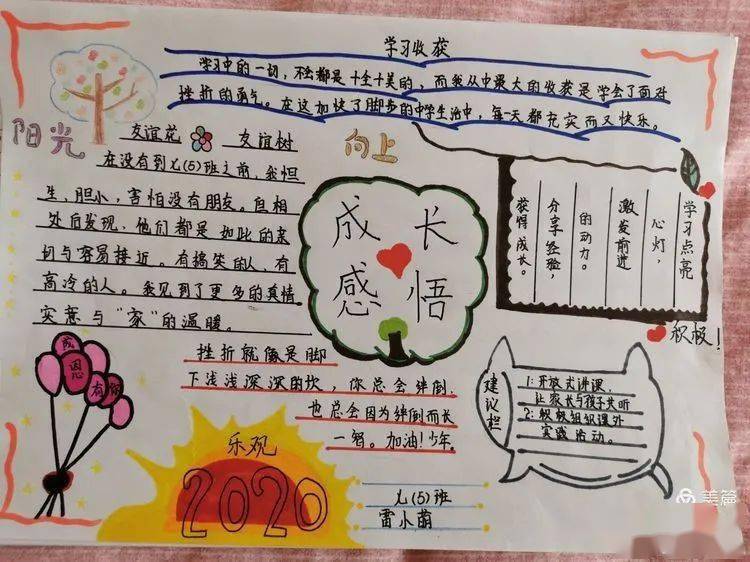 学习收获
学习中的一切，不会都是十全十美的，而我从中最大的收获是学会了面对
挫折的勇气。在这加快了脚步的中学生活中，每一天都充实而又快乐。
阳光
向上
友谊花 友谊树
在没有到七(5)班之前，我怕
生、胆小，害怕没有朋友。但相
处后发现，他们都是如此的亲
切与容易接近。有搞笑的人，有
高冷的人。我见到了更多的真情
实意与“家”的温暖。
成长
感悟
学习点亮
心灯，
激发前进
的动力。
分享经验，
获得成长。
积极！
挫折就像是脚
下浅浅深深的坎，你总会绊倒，
也总会因为绊倒而长
一智。加油！少年。
感恩有你
乐观
2020
建议栏
1：开放式讲课，
让家长与孩子共听
2：积极组织课外
实践活动。
七(5)班
雷小萌
美篇